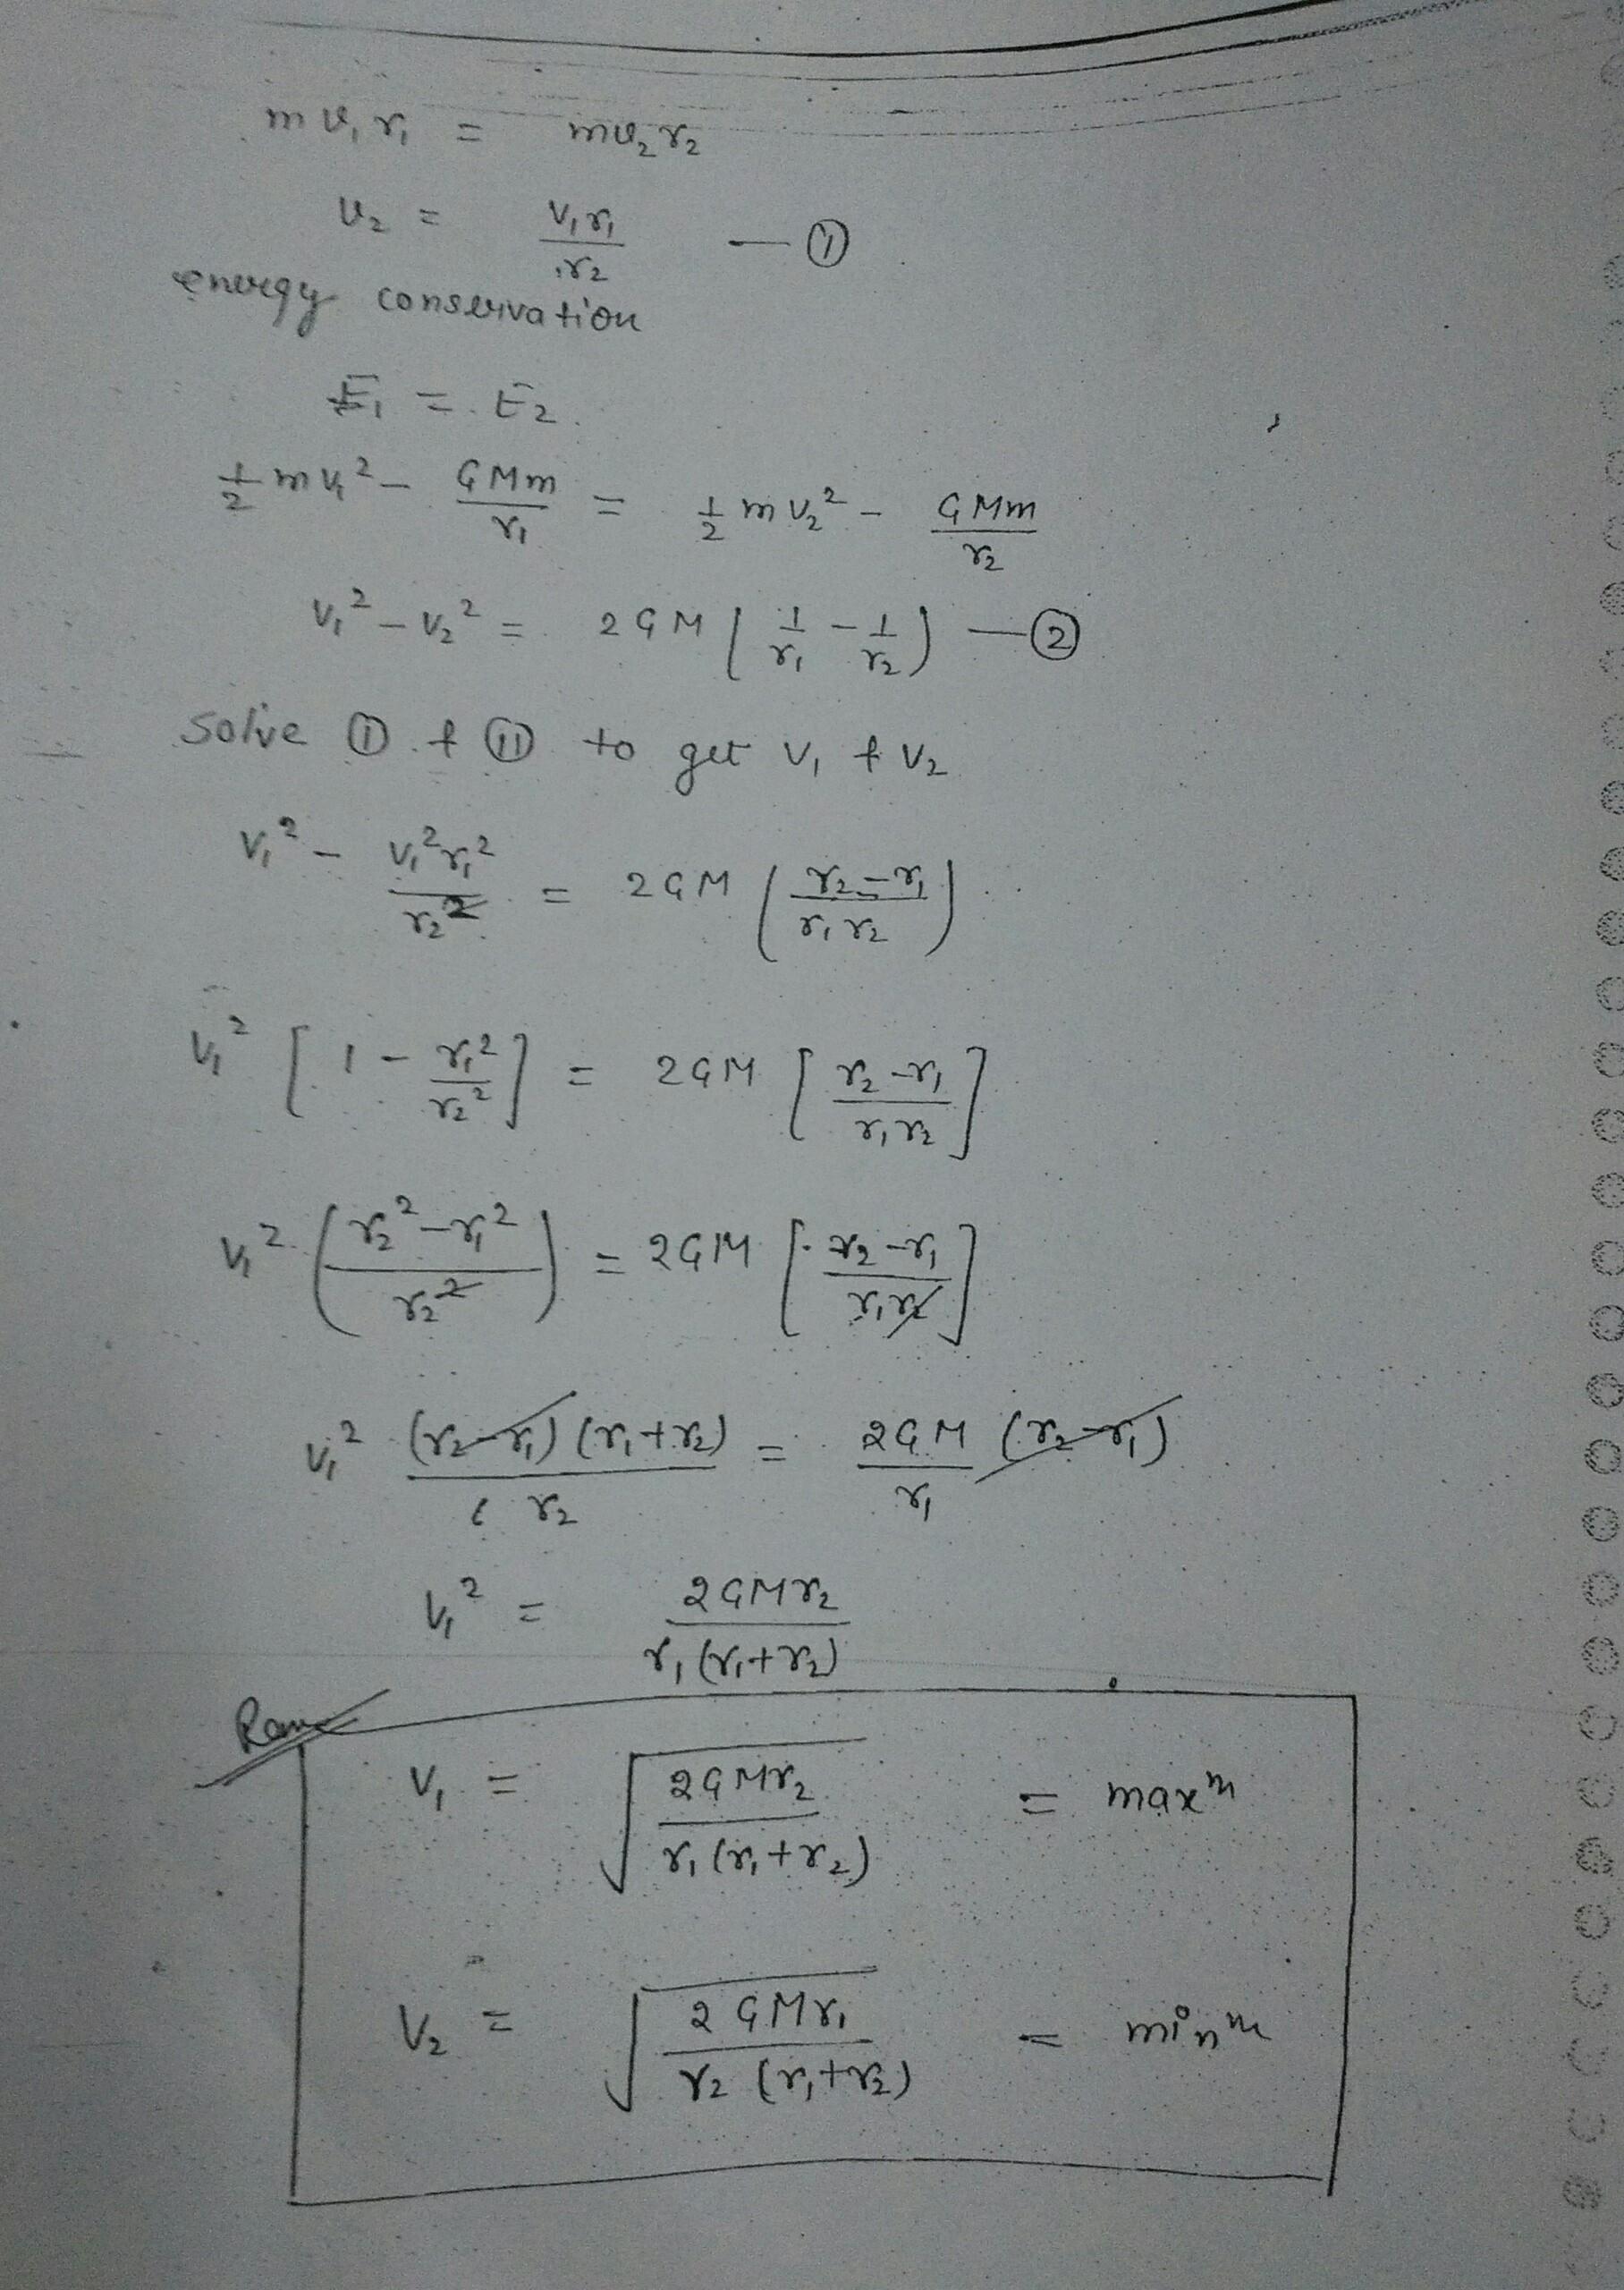 mv₁r₁ = mv₂r₂
v₂ = v₁r₁/r₂ — ①
energy conservation
E₁ = E₂
½mv₁² - GMm/r₁ = ½mv₂² - GMm/r₂
v₁² - v₂² = 2GM (1/r₁ - 1/r₂) — ②
Solve Ⓘ & Ⓘ̄Ⓘ to get v₁ & v₂
v₁² - v₁²r₁²/r₂² = 2GM ((r₂-r₁)/r₁r₂)
v₁² [1 - r₁²/r₂²] = 2GM [(r₂-r₁)/r₁r₂]
v₁² ((r₂²-r₁²)/r₂²) = 2GM [(r₂-r₁)/r₁r₂]
v₁² (r₂-r₁)(r₁+r₂)/r₂ = 2GM/r₁ (r₂-r₁)
v₁² = 2GMr₂/r₁(r₁+r₂)
v₁ = √(2GMr₂/r₁(r₁+r₂)) = maxᵐ
v₂ = √(2GMr₁/r₂(r₁+r₂)) = minᵐ